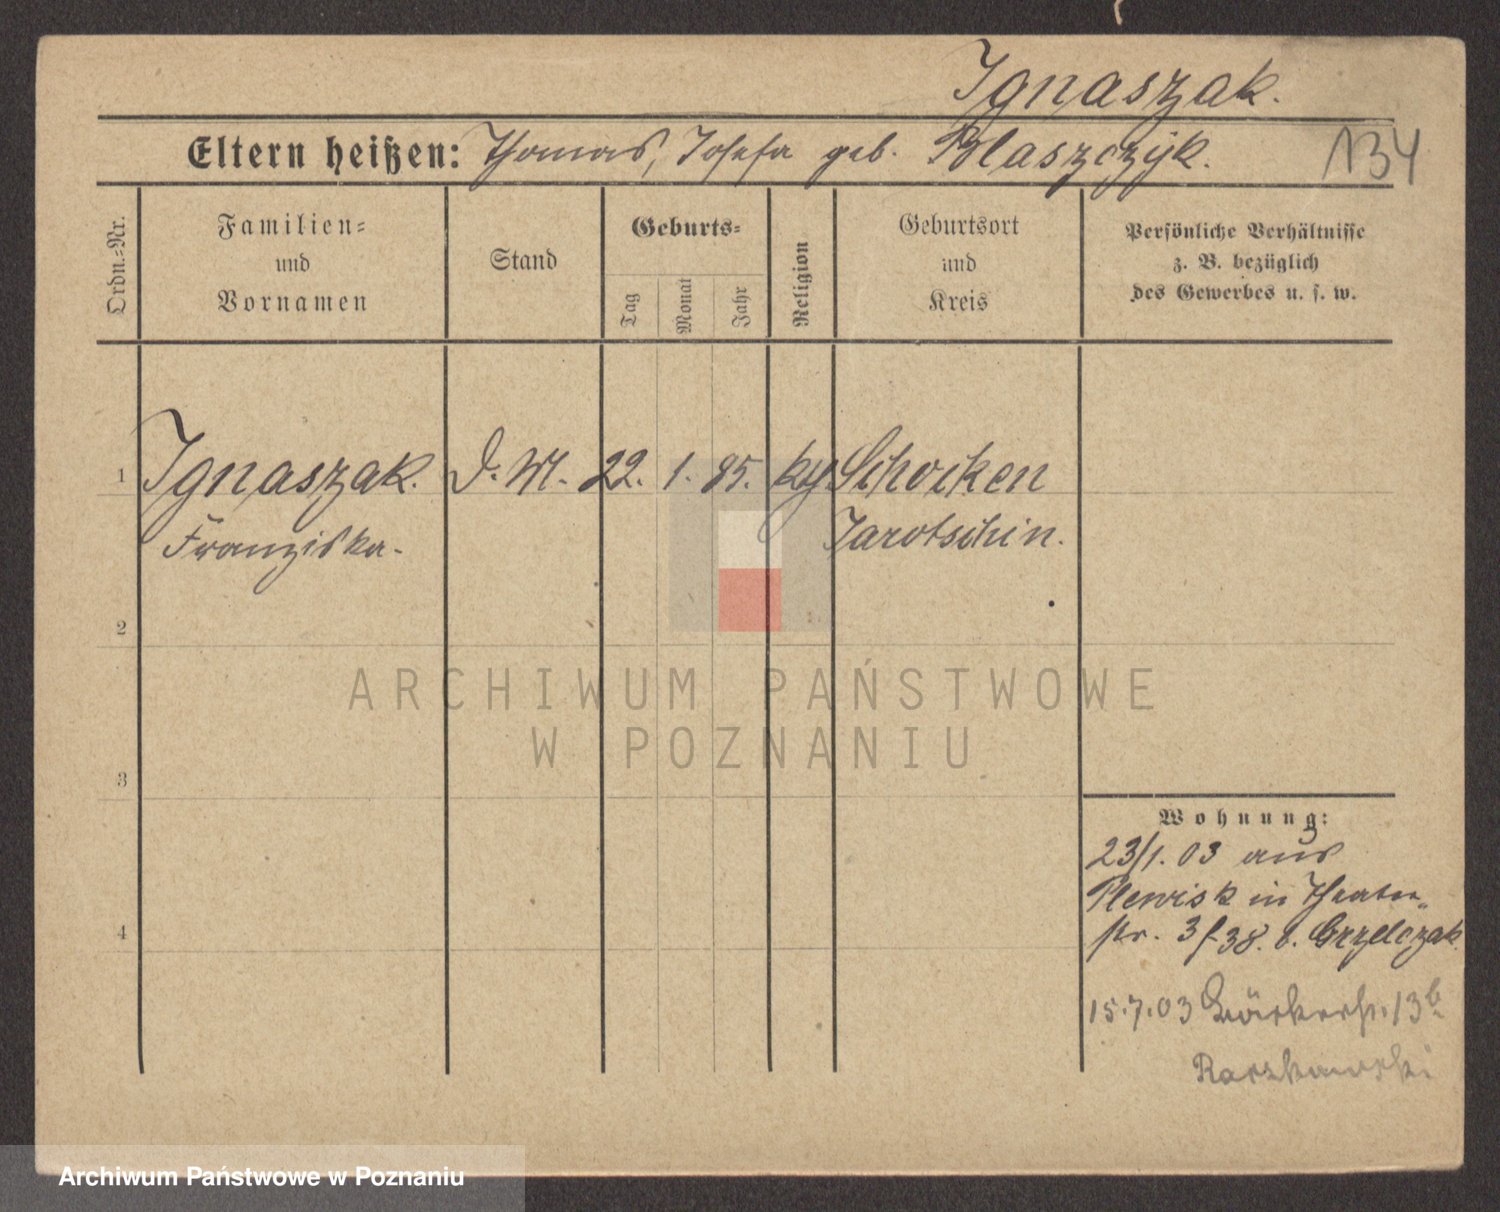 Ignaszak.
Eltern heißen: Thomas, Josefa geb. Blaszczÿk.
134
Ordn.=Nr.
Familien=
und
Vornamen
Stand
Geburts=
Tag
Monat
Jahr
Religion
Geburtsort
und
Kreis
Persönliche Verhältnisse
z. B. bezüglich
des Gewerbes u. s. w.
1 Ignaszak. D. M. 22. 1. 85. Schocken
Franziska. Jarotschin.
2
3
4
Wohnung:
23/1. 03 aus
Plewisk in Theater-
str. 3 b. Grzelczak
15.7.03 Bäckerstr. 13b
Raszkowski
ARCHIWUM PAŃSTWOWE
W POZNANIU
Archiwum Państwowe w Poznaniu